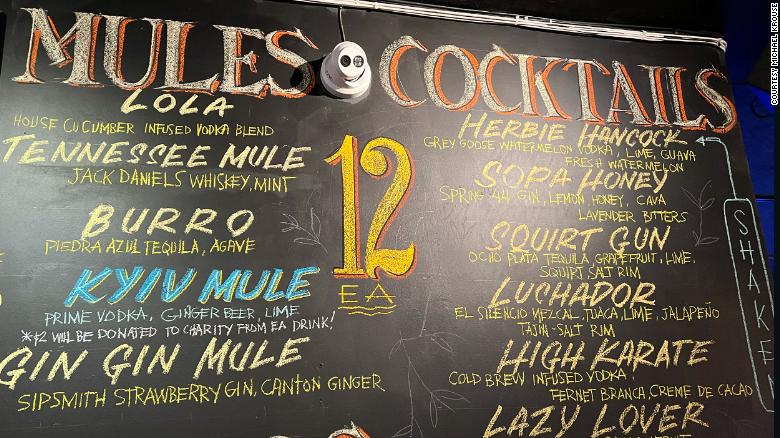 MULES
LOLA
HOUSE CUCUMBER INFUSED VODKA BLEND
TENNESSEE MULE
JACK DANIELS WHISKEY, MINT
BURRO
PIEDRA AZUL TEQUILA, AGAVE
KYIV MULE
PRIME VODKA, GINGER BEER, LIME
*$2 WILL BE DONATED TO CHARITY FROM EA DRINK!
GIN GIN MULE
SIPSMITH STRAWBERRY GIN, CANTON GINGER
12
EA
COCKTAILS
HERBIE HANCOCK
GREY GOOSE WATERMELON VODKA, LIME, GUAVA
FRESH WATERMELON
SOPA HONEY
SPRING '44 GIN, LEMON, HONEY, CAVA
LAVENDER BITTERS
SQUIRT GUN
OCHO PLATA TEQUILA, GRAPEFRUIT, LIME.
SQUIRT SALT RIM
LUCHADOR
EL SILENCIO MEZCAL, TUACA, LIME, JALAPEÑO
TAJIN-SALT RIM
HIGH KARATE
COLD BREW INFUSED VODKA,
FERNET BRANCA, CREME DE CACAO
LAZY LOVER
SHAKE
COURTESY MICHAEL KROUSE